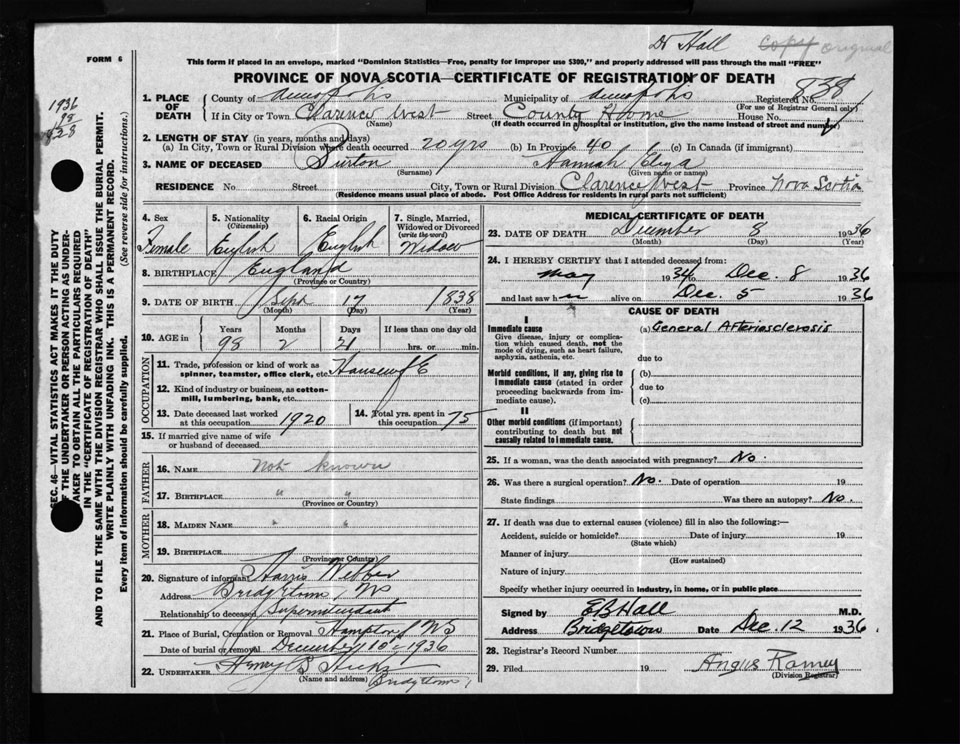 Dr Hall copy original
FORM 6
This form if placed in an envelope, marked "Dominion Statistics—Free, penalty for improper use $300," and properly addressed will pass through the mail "FREE"
PROVINCE OF NOVA SCOTIA—CERTIFICATE OF REGISTRATION OF DEATH
1936
98
838
SEC. 46—VITAL STATISTICS ACT MAKES IT THE DUTY
OF THE UNDERTAKER OR PERSON ACTING AS UNDERTAKER TO OBTAIN ALL THE PARTICULARS REQUIRED
IN THE "CERTIFICATE OF REGISTRATION OF DEATH"
AND TO FILE THE SAME WITH THE DIVISION REGISTRAR WHO SHALL ISSUE THE BURIAL PERMIT.
WRITE PLAINLY WITH UNFADING INK. THIS IS A PERMANENT RECORD.
Every item of information should be carefully supplied. (See reverse side for instructions.)
1. PLACE OF DEATH County of Annapolis Municipality of Annapolis Registered No. 838
(For use of Registrar General only)
If in City or Town Clarence West Street County Home House No.
(Name) (If death occurred in hospital or institution, give the name instead of street and number)
2. LENGTH OF STAY (in years, months and days)
(a) In City, Town or Rural Division where death occurred 20 yrs (b) In Province 40 (c) In Canada (if immigrant)
3. NAME OF DECEASED Burton Hannah Eliza
(Surname) (Given name or names)
RESIDENCE No. Street City, Town or Rural Division Clarence West Province Nova Scotia
(Residence means usual place of abode. Post Office Address for residents in rural parts not sufficient)
4. Sex 5. Nationality 6. Racial Origin 7. Single, Married,
(Citizenship) Widowed or Divorced
(write the word)
Female English English Widow
8. BIRTHPLACE England
(Province or Country)
9. DATE OF BIRTH Sept 17 1838
(Month) (Day) (Year)
10. AGE in Years Months Days If less than one day old
98 2 21 hrs. or min.
OCCUPATION
11. Trade, profession or kind of work as
spinner, teamster, office clerk, etc. Housewife
12. Kind of industry or business, as cotton-
mill, lumbering, bank, etc.
13. Date deceased last worked
at this occupation 1920
14. Total yrs. spent in
this occupation 75
15. If married give name of wife
or husband of deceased
FATHER
16. NAME not known
17. BIRTHPLACE " "
(Province or Country)
MOTHER
18. MAIDEN NAME " "
19. BIRTHPLACE
(Province or Country)
20. Signature of informant Harris
Address Bridgetown, NS
Relationship to deceased Superintendant
21. Place of Burial, Cremation or Removal Hampton NS
Date of burial or removal December 10 1936
22. UNDERTAKER Henry B Hicks
(Name and address) Bridgetown
MEDICAL CERTIFICATE OF DEATH
23. DATE OF DEATH December 8 1936
(Month) (Day) (Year)
24. I HEREBY CERTIFY that I attended deceased from:
May 1934 to Dec. 8 1936
and last saw her alive on Dec. 5 1936
CAUSE OF DEATH
I
Immediate cause (a) General Arteriosclerosis
Give disease, injury or complica-
tion which caused death, not the
mode of dying, such as heart failure,
asphyxia, asthenia, etc.
due to
Morbid conditions, if any, giving rise to
immediate cause (stated in order
proceeding backwards from im-
mediate cause).
(b)
due to
(c)
II
Other morbid conditions (if important)
contributing to death but not
causally related to immediate cause.
25. If a woman, was the death associated with pregnancy? No.
26. Was there a surgical operation? No. Date of operation 19
State findings Was there an autopsy? No.
27. If death was due to external causes (violence) fill in also the following:—
Accident, suicide or homicide? Date of injury 19
(State which)
Manner of injury
(How sustained)
Nature of injury
Specify whether injury occurred in industry, in home, or in public place
Signed by EB Hall M.D.
Address Bridgetown Date Dec. 12 1936
28. Registrar's Record Number
29. Filed 19 Angus Ramey
(Division Registrar)